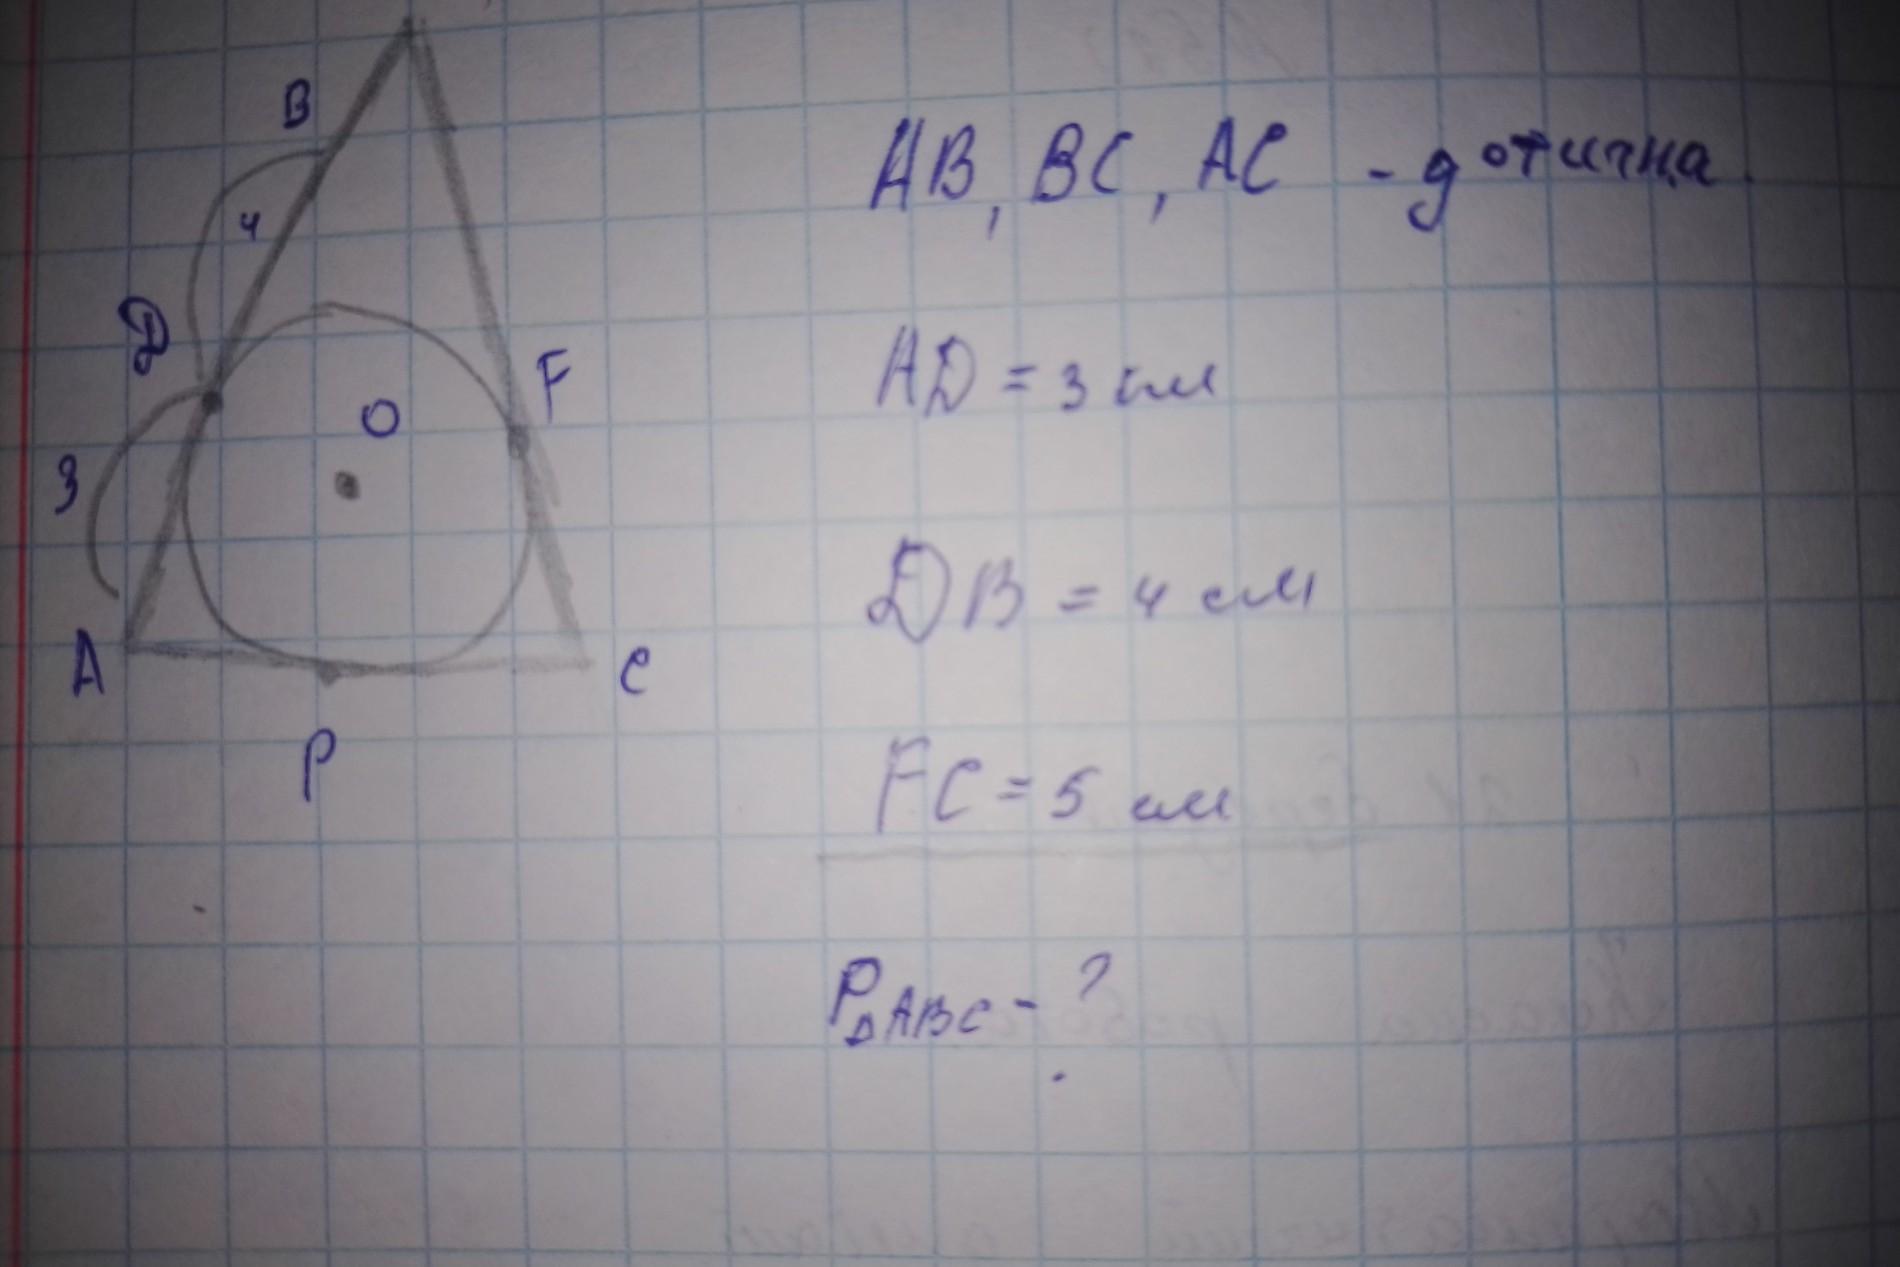 B
4
D
F
O
3
A
C
P
AB, BC, AC - дотична
AD = 3 см
DB = 4 см
FC = 5 см
P△ABC - ?